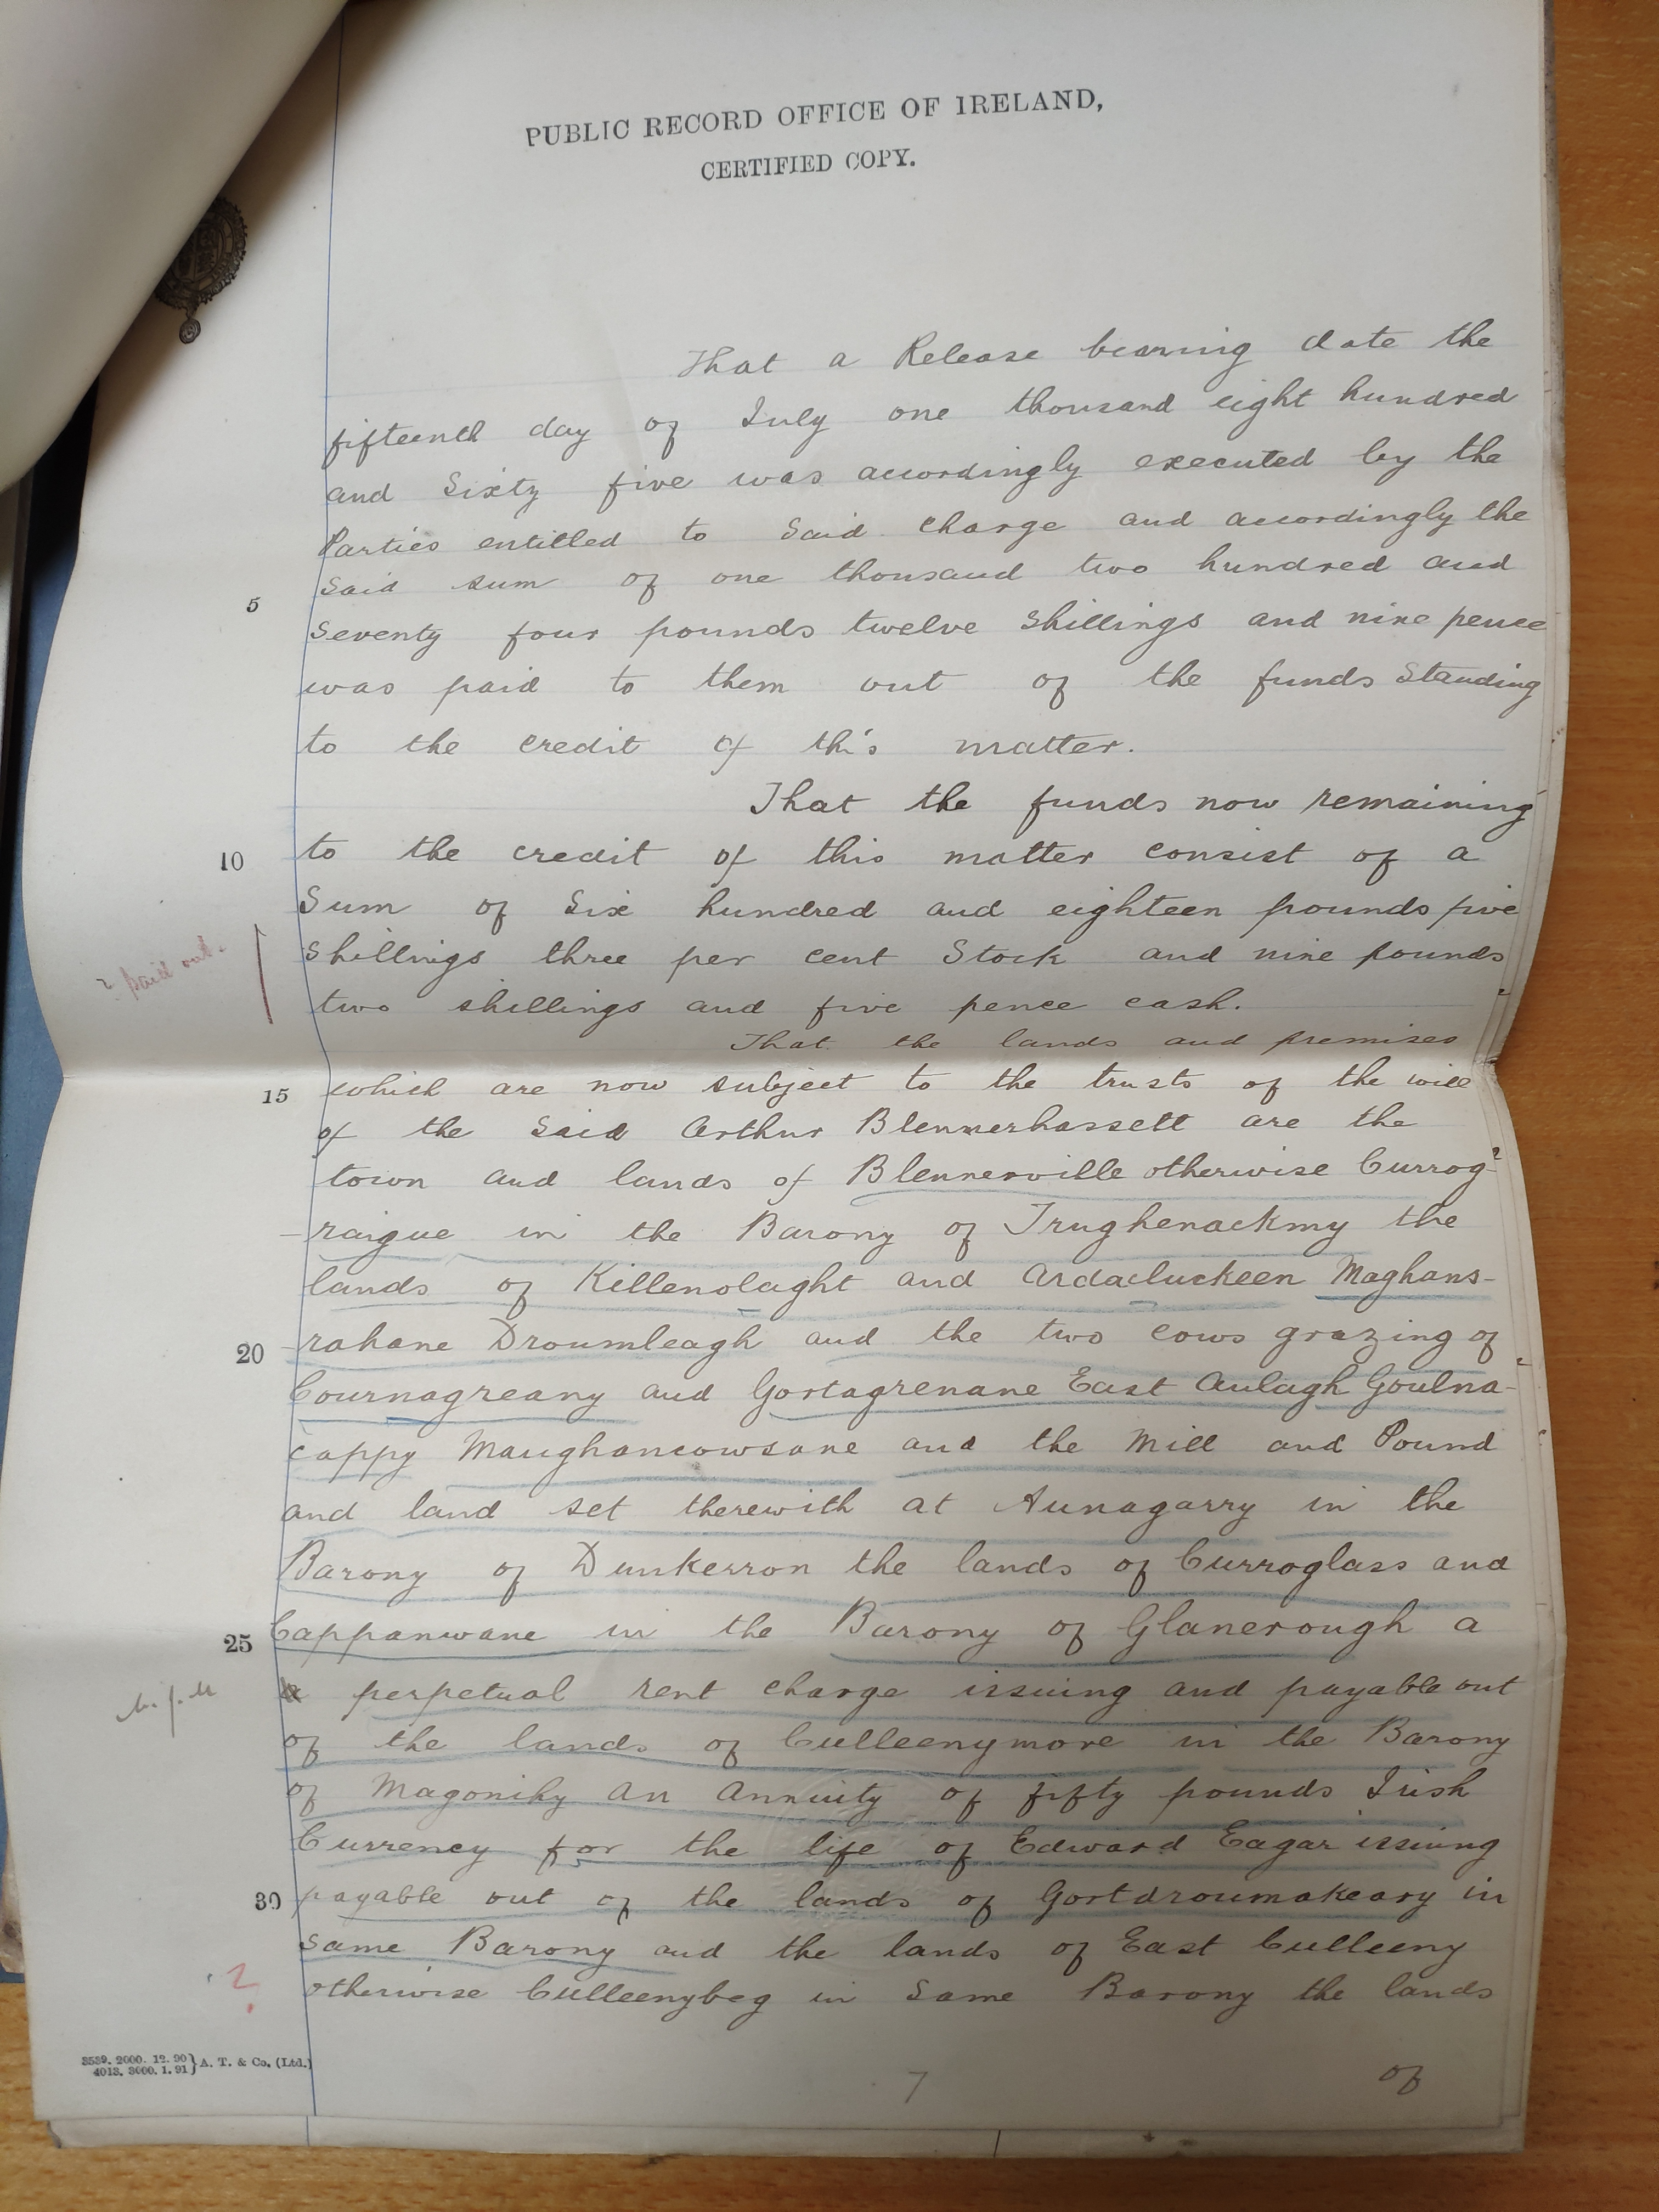 PUBLIC RECORD OFFICE OF IRELAND,
CERTIFIED COPY.
That a Release bearing date the
fifteenth day of July one thousand eight hundred
and Sixty five was accordingly executed by the
Parties entitled to Said Charge and accordingly the
5 Said sum of one thousand two hundred and
Seventy four pounds twelve Shillings and nine pence
was paid to them out of the funds Standing
to the credit of this matter.
That the funds now remaining
10 to the credit of this matter consist of a
Sum of Six hundred and eighteen pounds five
? paid out. Shillings three per cent Stock and nine pounds
two shillings and five pence cash.
That the lands and premises
15 which are now subject to the trusts of the will
of the Said Arthur Blennerhassett are the
town and lands of Blennerville otherwise Currog-
-raigue in the Barony of Trughenackmy the
lands of Killenolaght and Ardacluckeen Maghans-
20 -rahane Droumleagh and the two cows grazing of
Cournagreany and Gortagrenane East Aulagh Goulna-
cappy Maughancowsane and the Mill and Pound
and land set therewith at Aunagarry in the
Barony of Dunkerron the lands of Curroglass and
25 Cappanwane in the Barony of Glanerough a
a perpetual rent charge issuing and payable out
of the lands of Culleenymore in the Barony
of Magonihy an Annuity of fifty pounds Irish
Currency for the life of Edward Eagar issuing
30 payable out of the lands of Gortdroumakeary in
same Barony and the lands of East Culleeny
? otherwise Culleenybeg in Same Barony the lands
of
7
3539. 2000. 12. 90 } A. T. & Co. (Ltd.)
4013. 3000. 1. 91